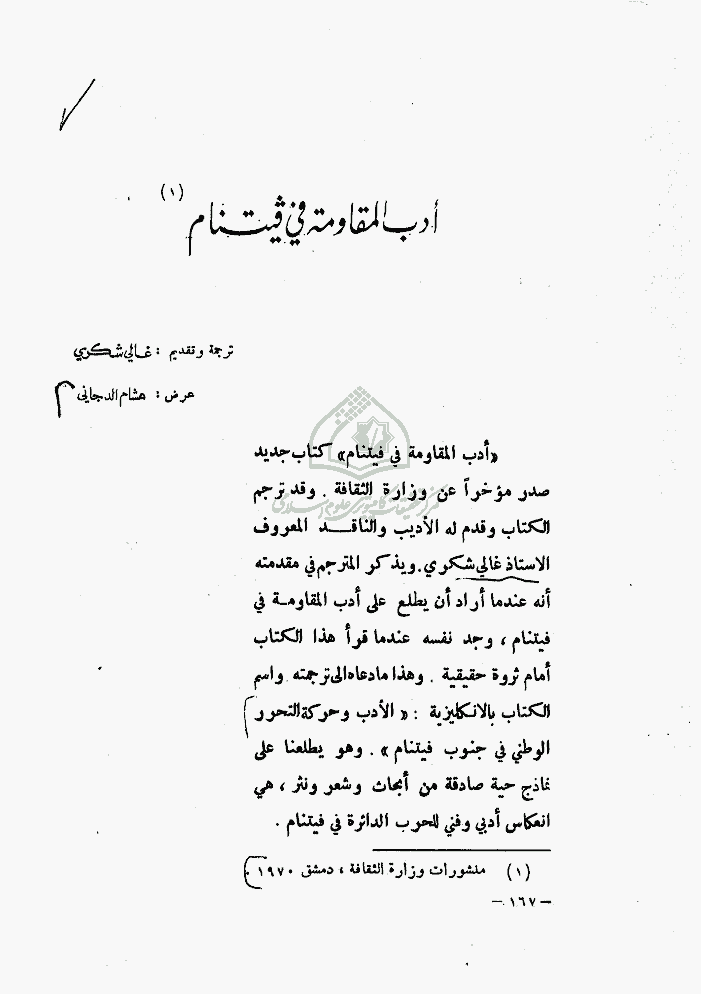 أدب المقاومة في ڤيتنام (١)
ترجمة وتقديم : غالي شكري
عرض : هشام الدجاني
«أدب المقاومة في فيتنام» كتاب جديد
صدر مؤخراً عن وزارة الثقافة . وقد ترجم
الكتاب وقدم له الأديب والناقد المعروف
الاستاذ غالي شكري . ويذكر المترجم في مقدمته
أنه عندما أراد أن يطلع على أدب المقاومة في
فيتنام ، وجد نفسه عندما قرأ هذا الكتاب
أمام ثروة حقيقية . وهذا مادعاه الى ترجمته . واسم
الكتاب بالانكليزية : « الأدب وحركة التحرر
الوطني في جنوب فيتنام » . وهو يطلعنا على
نماذج حية صادقة من أبحاث وشعر ونثر ، هي
انعكاس أدبي وفني للحرب الدائرة في فيتنام .
(١) منشورات وزارة الثقافة ، دمشق ١٩٧٠ .
— ١٦٧ —
مركز تحقيقات كامپيوتری علوم اسلامی